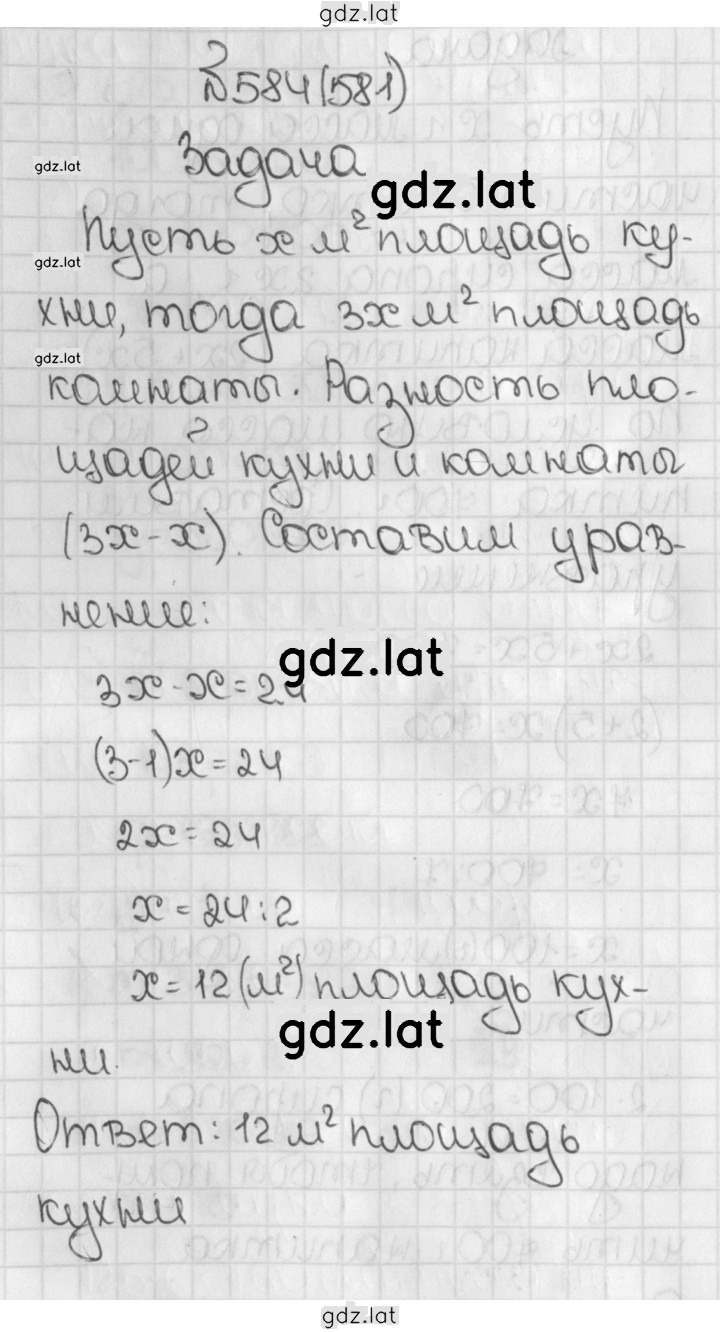 gdz.lat
№584(581)
Задача
gdz.lat
gdz.lat
Пусть x м² площадь ку-
gdz.lat
хни, тогда 3x м² площадь
gdz.lat
комнаты. Разность пло-
щадей кухни и комнаты
(3x-x). Составим урав-
нение:
gdz.lat
3x-x=24
(3-1)x=24
2x=24
x=24:2
x=12(м²) площадь кух-
gdz.lat
ни.
Ответ: 12 м² площадь
кухни
gdz.lat